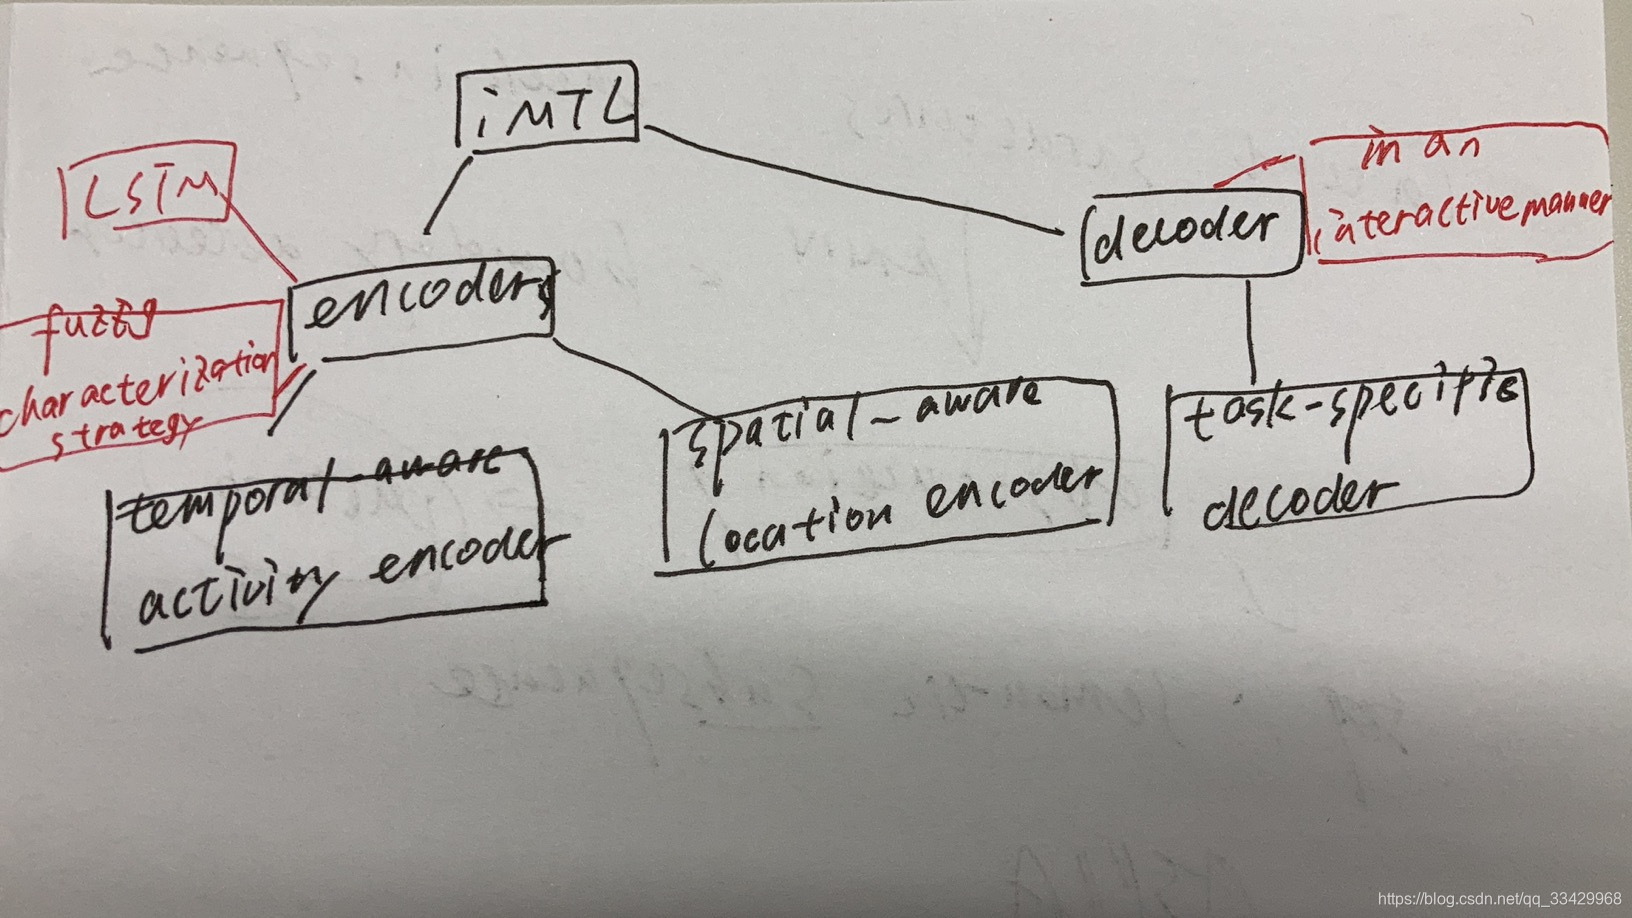 iMTL
LSTM
in an
interactive manner
decoder
encoders
fuzzy
characterization
strategy
spatial-aware
location encoder
task-specific
decoder
temporal-aware
activity encoder
https://blog.csdn.net/qq_33429968